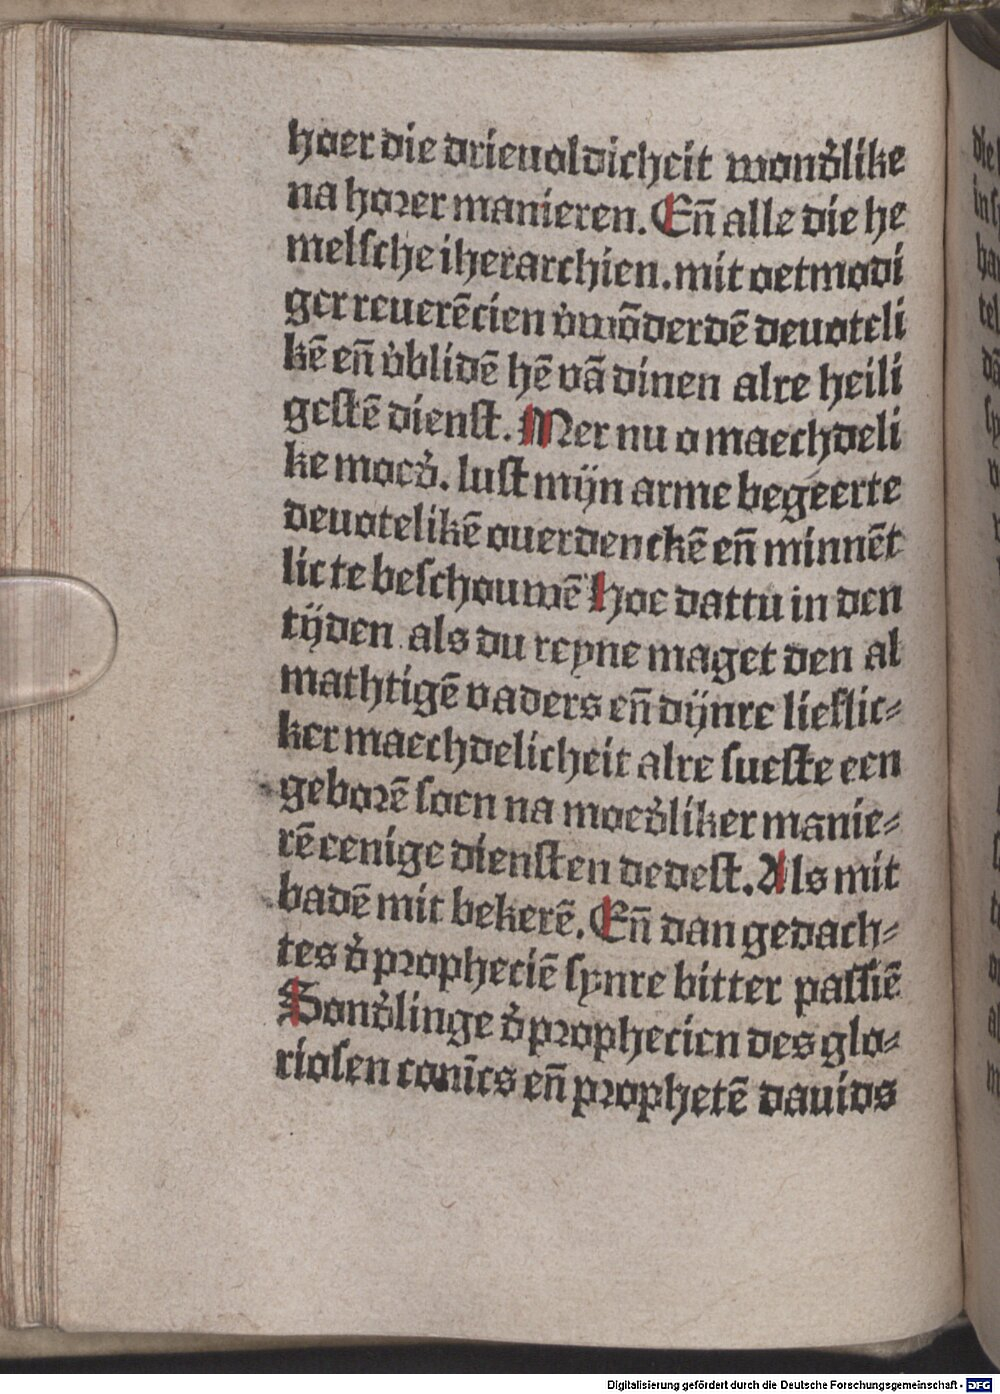 hoer die drieuoldicheit wond̕like
na horer manieren. Eñ alle die he
melsche iherarchien. mit oetmodi
ger reuerēcien v̕wōderdē deuoteli
kē eñ v̕blidē hē vā dinen alre heili
gestē dienst. Mer nu o maechdeli
ke moed̕. lust mijn arme begeerte
deuotelikē ouerdenckē eñ minnēt
licte beschouwē hoe dattu in den
tijden als du reyne maget den al
mathtigē vaders eñ dijnre lieflic⸗
ker maechdelicheit alre sueste een
geborē soen na moed̕liker manie⸗
rē eenige diensten dedest. Als mit
badē mit bekerē. Eñ dan gedach⸗
tes d̕ propheciē synre bitter passiē
Sond̕linge d̕ prophecien des glo⸗
riosen conīcs eñ prophetē dauids
Digitalisierung gefördert durch die Deutsche Forschungsgemeinschaft - DFG